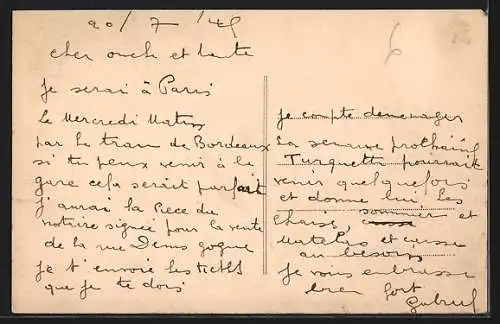 20/7/45
cher oncle et tante
je serai à Paris
Le Mercredi Matin
par le train de Bordeaux
si tu peux venir à la
gare cela serait parfait
j'aurai la Piece du
notaire signée pour la vente
de la rue Denis gogue
je t'envoie les tickets
que je te dois
je compte demenager
La semaine prochaine
Turquetti pourrait
venir quelquefois
et donne lui les
chaises, sommier et
Matelas et
au besoin
je vous embrasse
bien fort
6